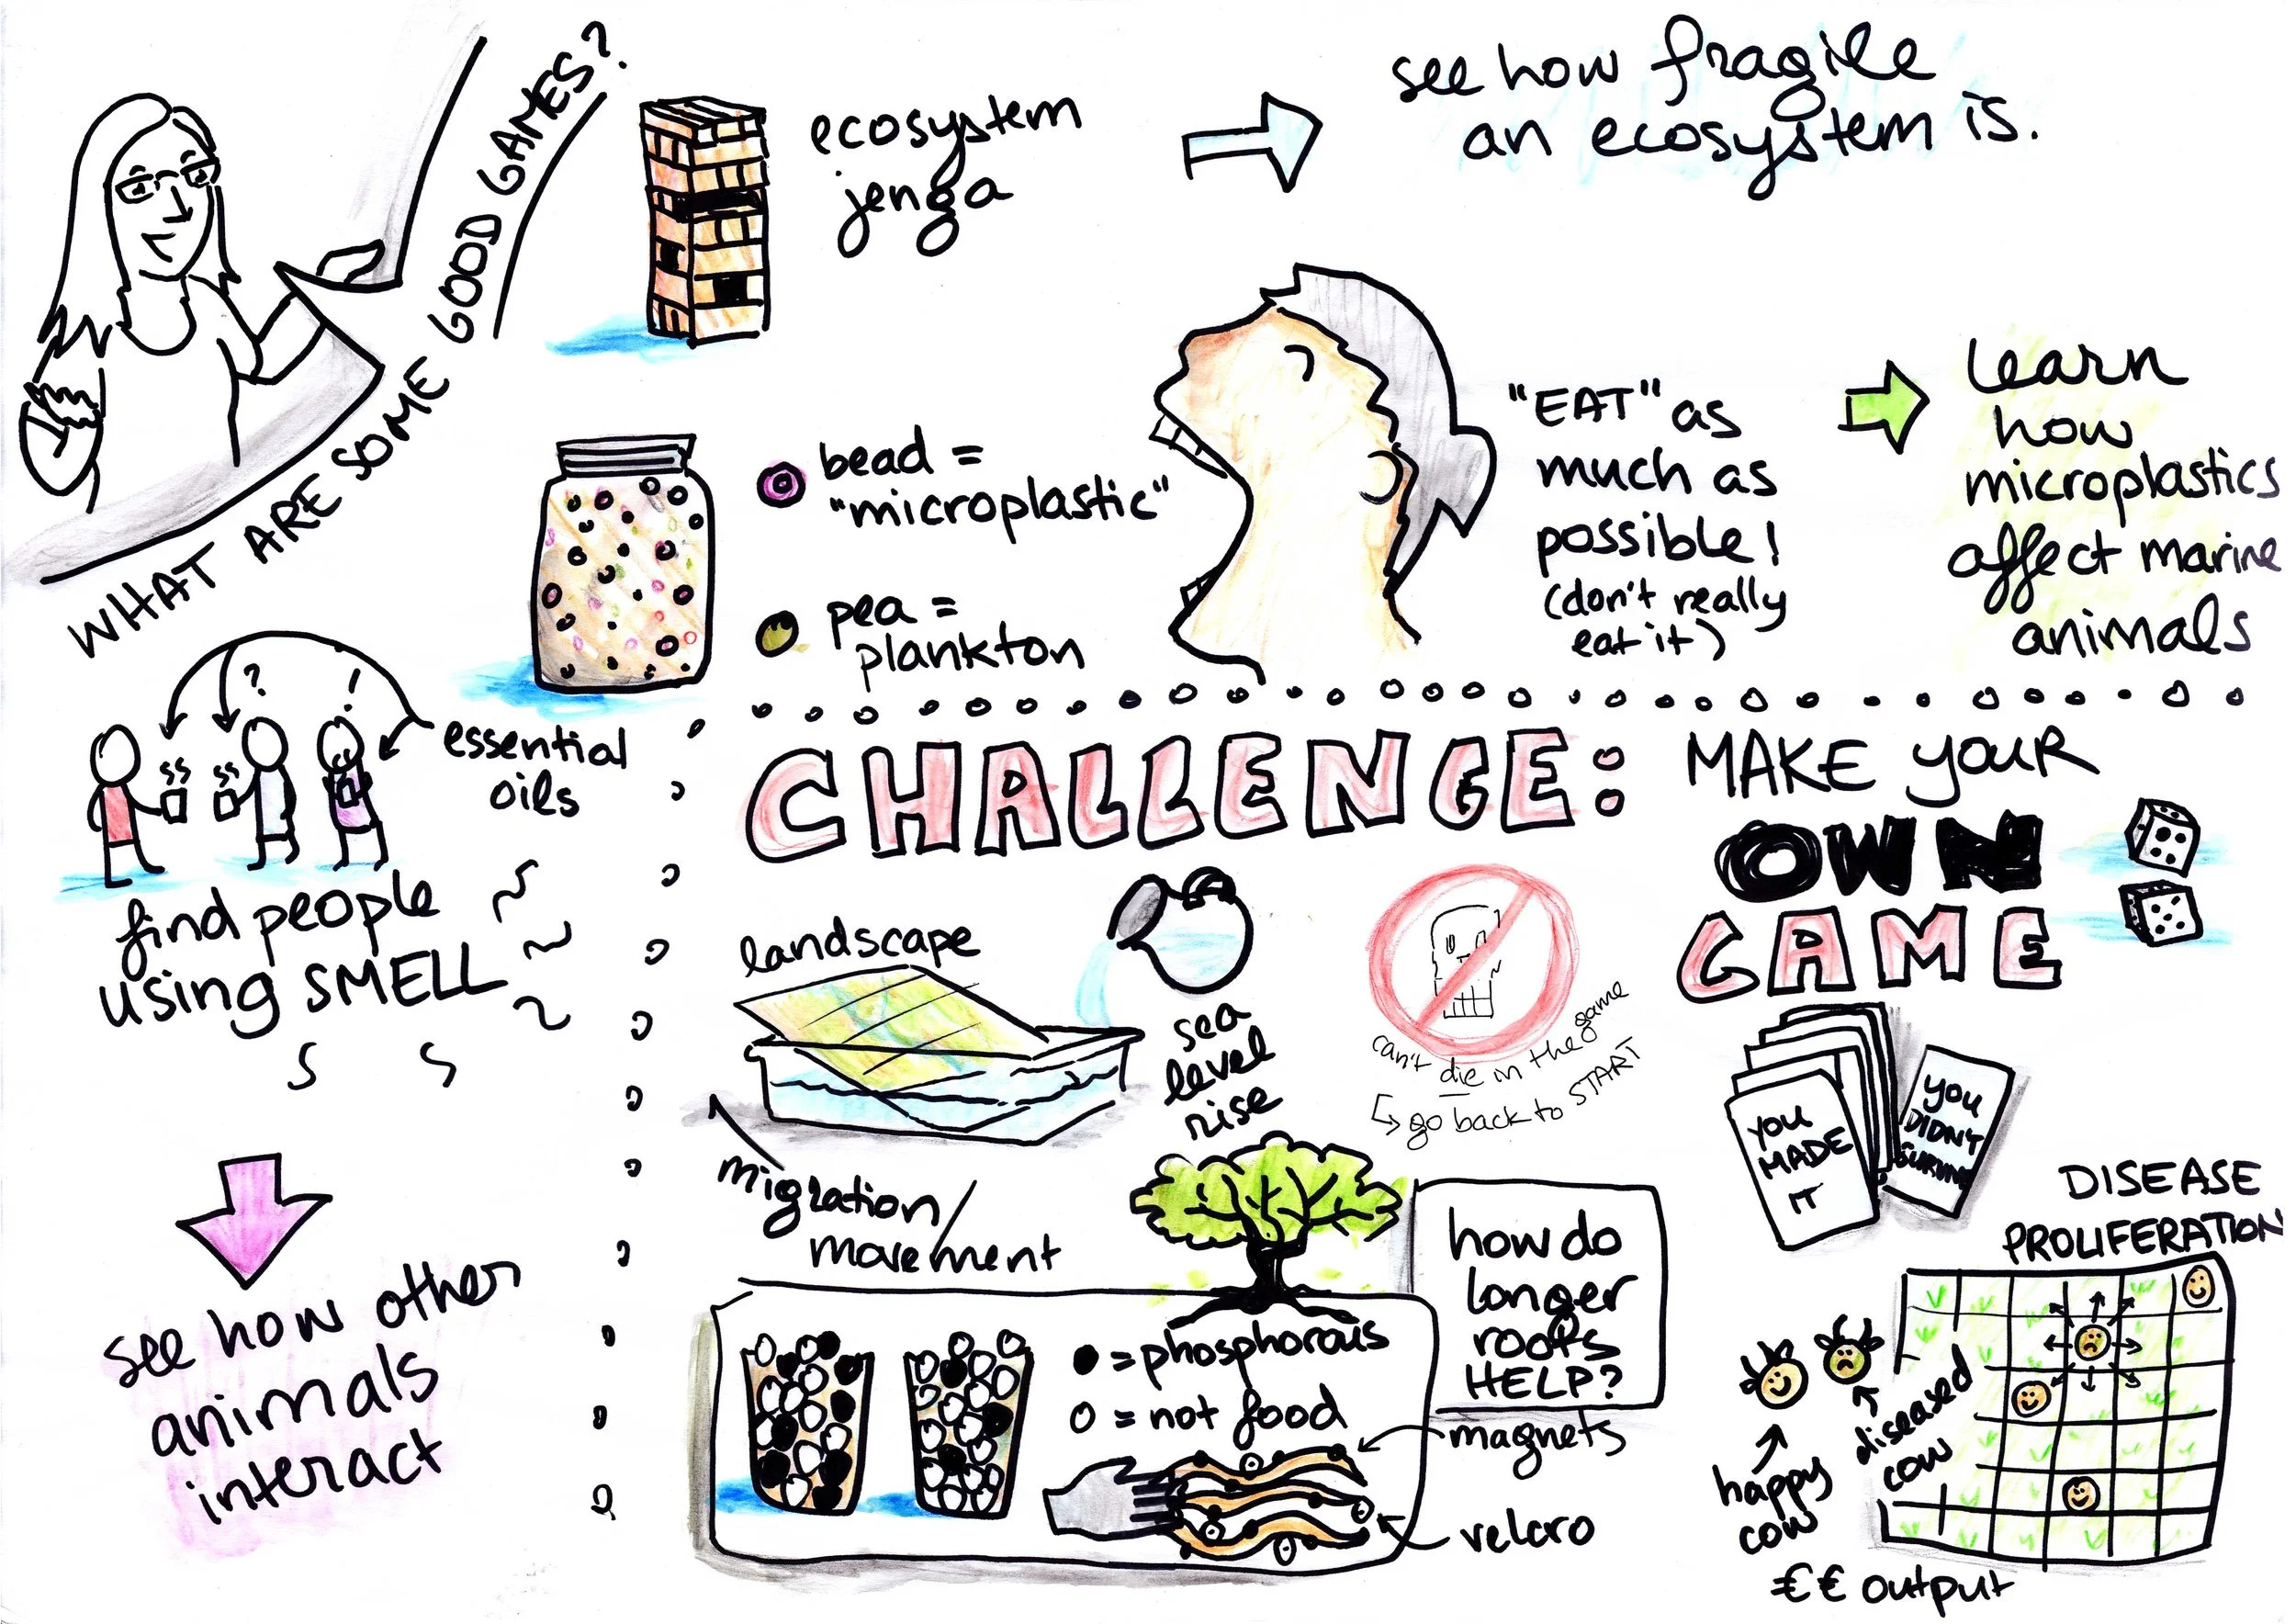 WHAT ARE SOME GOOD GAMES?
ecosystem
jenga
see how fragile
an ecosystem is.
bead =
"microplastic"
pea =
plankton
"EAT" as
much as
possible!
(don't really
eat it)
learn
how
microplastics
affect marine
animals
?
!
essential
oils
find people
using SMELL
see how other
animals
interact
CHALLENGE:
MAKE YOUR
OWN
GAME
landscape
sea
level
rise
migration/
movement
can't die in the game
go back to START
YOU
MADE
IT
YOU
DIDN'T
SURVIVE
how do
longer
roots
HELP?
= phosphorous
= not food
magnets
velcro
DISEASE
PROLIFERATION
happy
cow
diseased
cow
€€ output